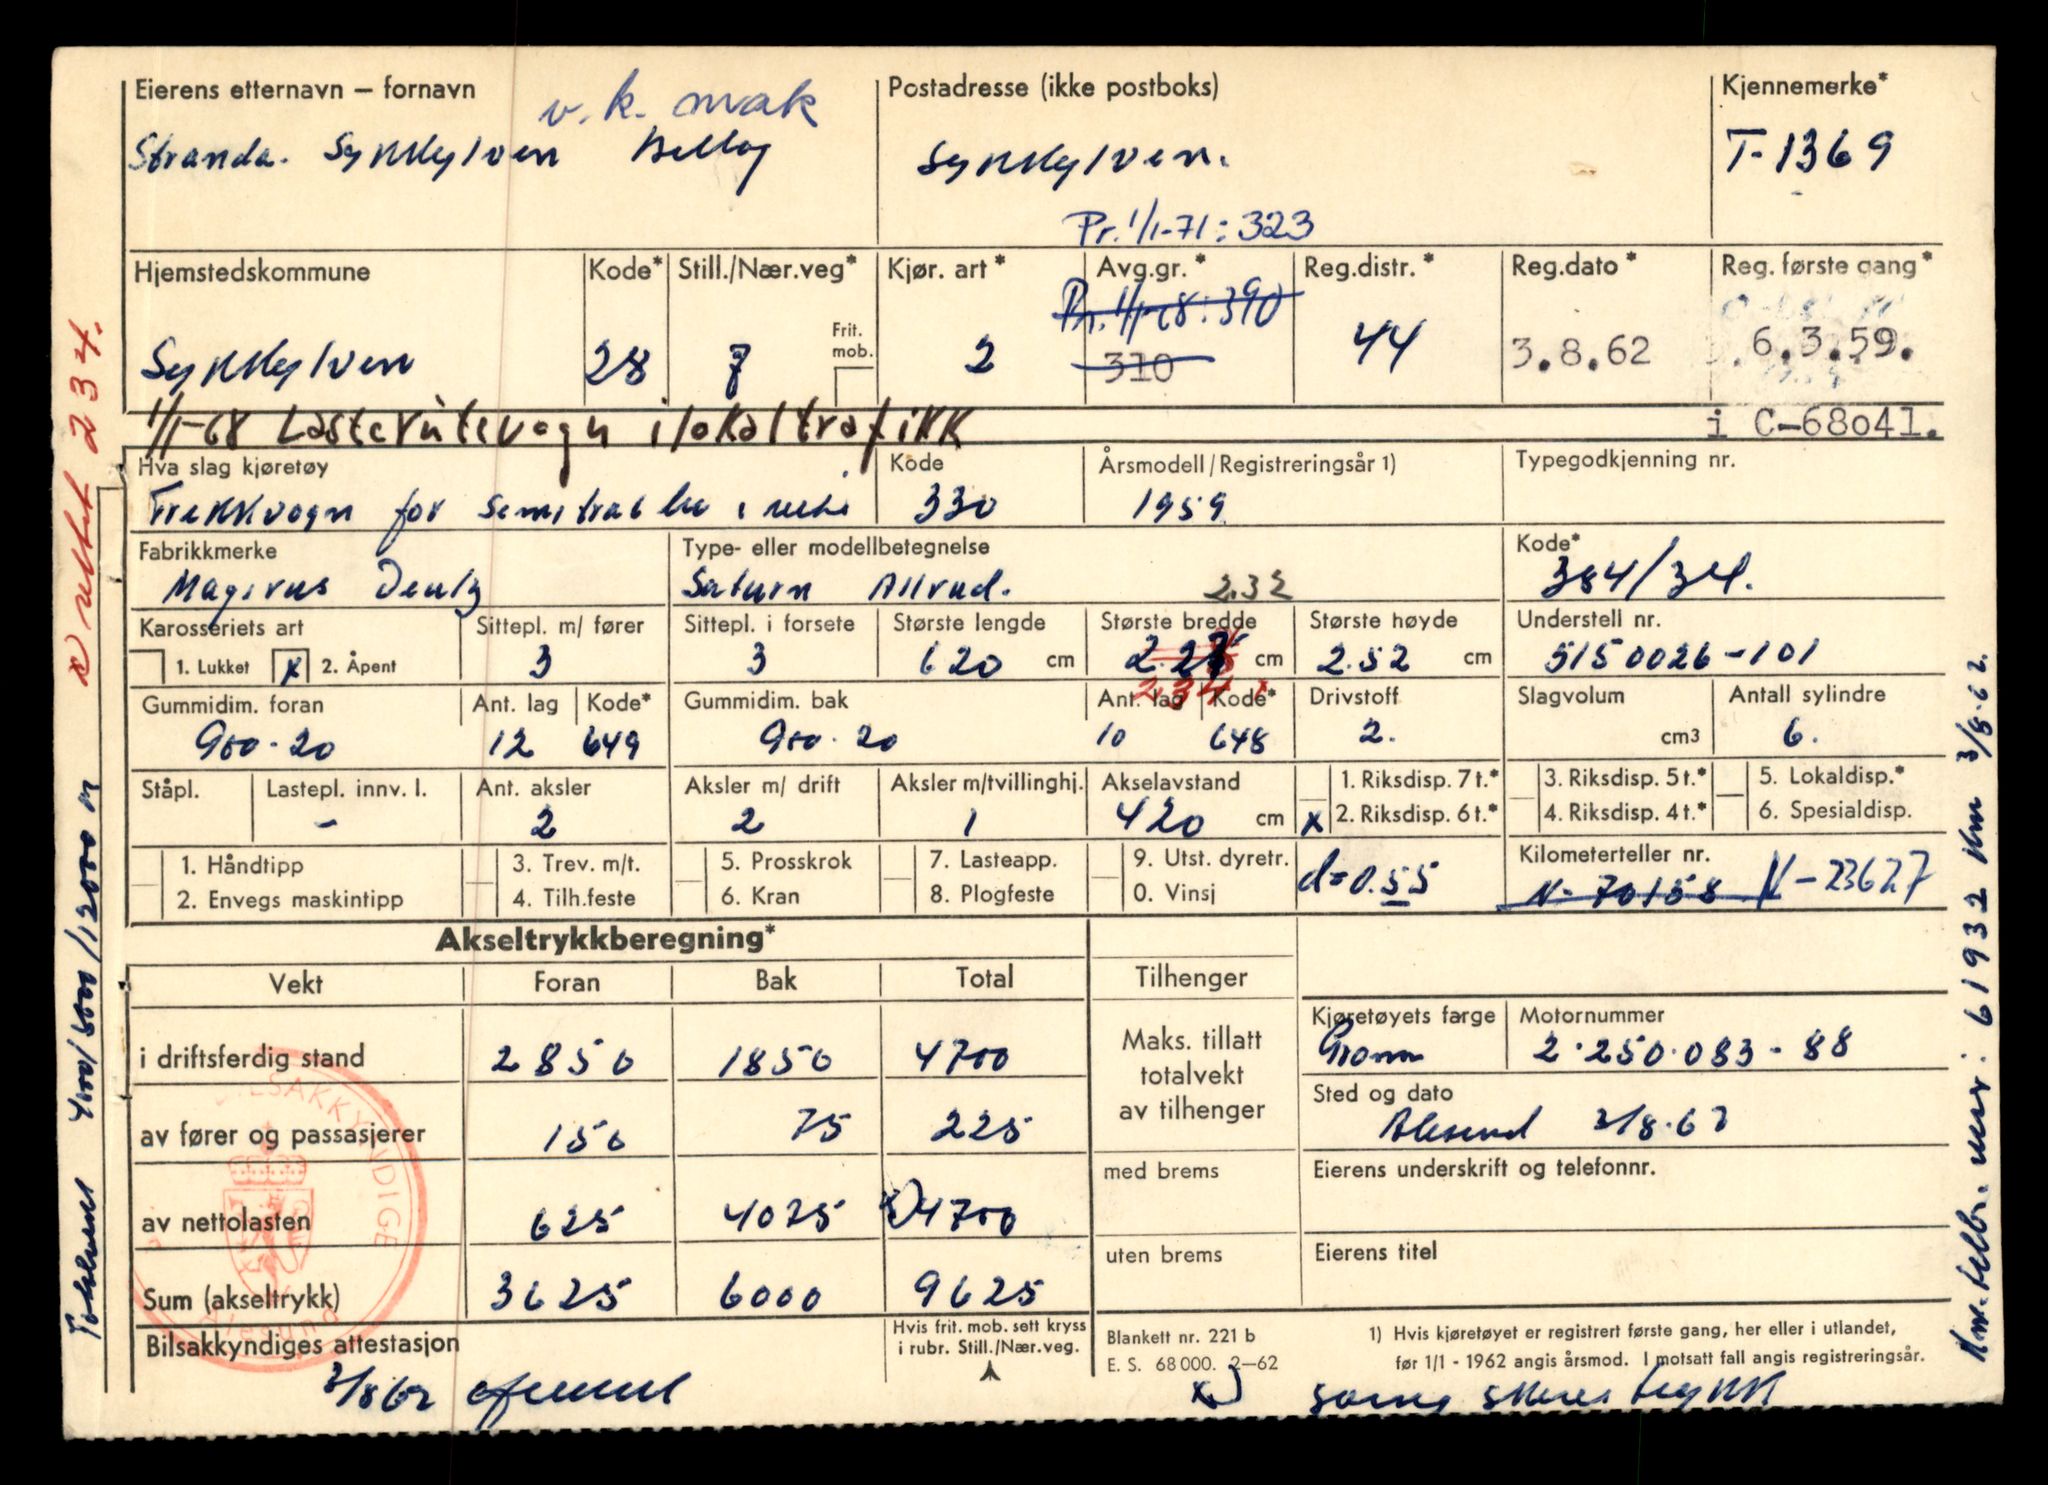 Eierens etternavn – fornavn v.k. mrak Postadresse (ikke postboks) Kjennemerke*
Stranda. Sykkylven Billag Sykkylven. T-1369
Pr. 1/1-71: 323
Hjemstedskommune Kode* Still./Nær.veg* Kjør. art* Avg.gr.* Reg.distr.* Reg.dato* Reg. første gang*
Pr. 1/1-68: 390
Frit. mob.
Sykkylven 28 7 2 310 44 3.8.62 6.3.59.
1/1-68 Lasterutevogn i lokaltrafikk i C-68041.
Hva slag kjøretøy Kode Årsmodell/Registreringsår 1) Typegodkjenning nr.
Trekkvogn for Semitrailer i rute 330 1959
Fabrikkmerke Type- eller modellbetegnelse Kode*
Magirus Deutz Saturn Allrad. 2.32 384/34.
Karosseriets art Sittepl. m/ fører Sittepl. i forsete Største lengde Største bredde Største høyde Understell nr.
1. Lukket x 2. Åpent 3 3 620 cm 2.27 cm 2.52 cm 5150026-101
2.34 x
Gummidim. foran Ant. lag Kode* Gummidim. bak Ant. lag Kode* Drivstoff Slagvolum Antall sylindre
900-20 12 649 900-20 10 648 2. cm3 6.
Ståpl. Lastepl. innv. l. Ant. aksler Aksler m/ drift Aksler m/tvillinghj. Akselavstand 1. Riksdisp. 7 t.* 3. Riksdisp. 5 t.* 5. Lokaldisp.*
– 2 2 1 420 cm x 2. Riksdisp. 6 t.* 4. Riksdisp. 4 t.* 6. Spesialdisp.
1. Håndtipp 3. Trev. m/t. 5. Prosskrok 7. Lasteapp. 9. Utst. dyretr. Kilometerteller nr.
2. Envegs maskintipp 4. Tilh.feste 6. Kran 8. Plogfeste 0. Vinsj d=0.55 N-70158 N-23627
Akseltrykkberegning*
Vekt Foran Bak Total Tilhenger
i driftsferdig stand 2850 1850 4700
av fører og passasjerer 150 75 225
av nettolasten 625 4075 x) 4700
Sum (akseltrykk) 3625 6000 9625
Maks. tillatt
totalvekt
av tilhenger
med brems
uten brems
Kjøretøyets farge Motornummer
Grønn 2.250.083-88
Sted og dato
Ålesund 3/8.62
Eierens underskrift og telefonnr.
Eierens titel
BILSAKKYNDIGE
Ålesund
Bilsakkyndiges attestasjon
3/8 62
Hvis frit. mob. sett kryss
i rubr. Still./Nær.veg.
Blankett nr. 221 b
E. S. 68 000. 2–62
1) Hvis kjøretøyet er registrert første gang, her eller i utlandet,
før 1/1 - 1962 angis årsmod. I motsatt fall angis registreringsår.
x) trykk
x rettet 234.
4000/5000/12000 m
61932 km 3/8.62.